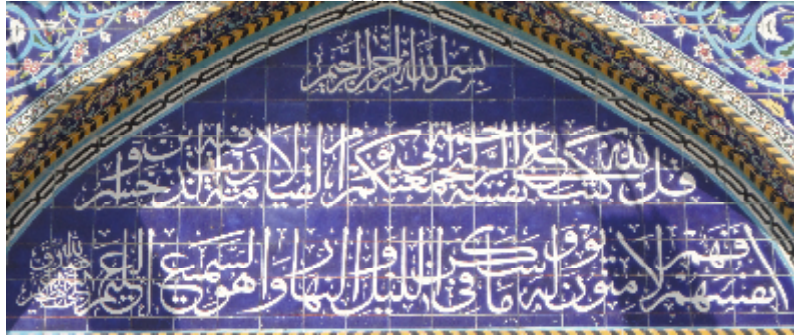 بسم الله الرحمن الرحيم
قل لله كتب على نفسه الرحمة ليجمعنكم الى يوم القيامة لا ريب فيه الذين خسروا
انفسهم فهم لا يؤمنون وله ما سكن في الليل والنهار وهو السميع العليم